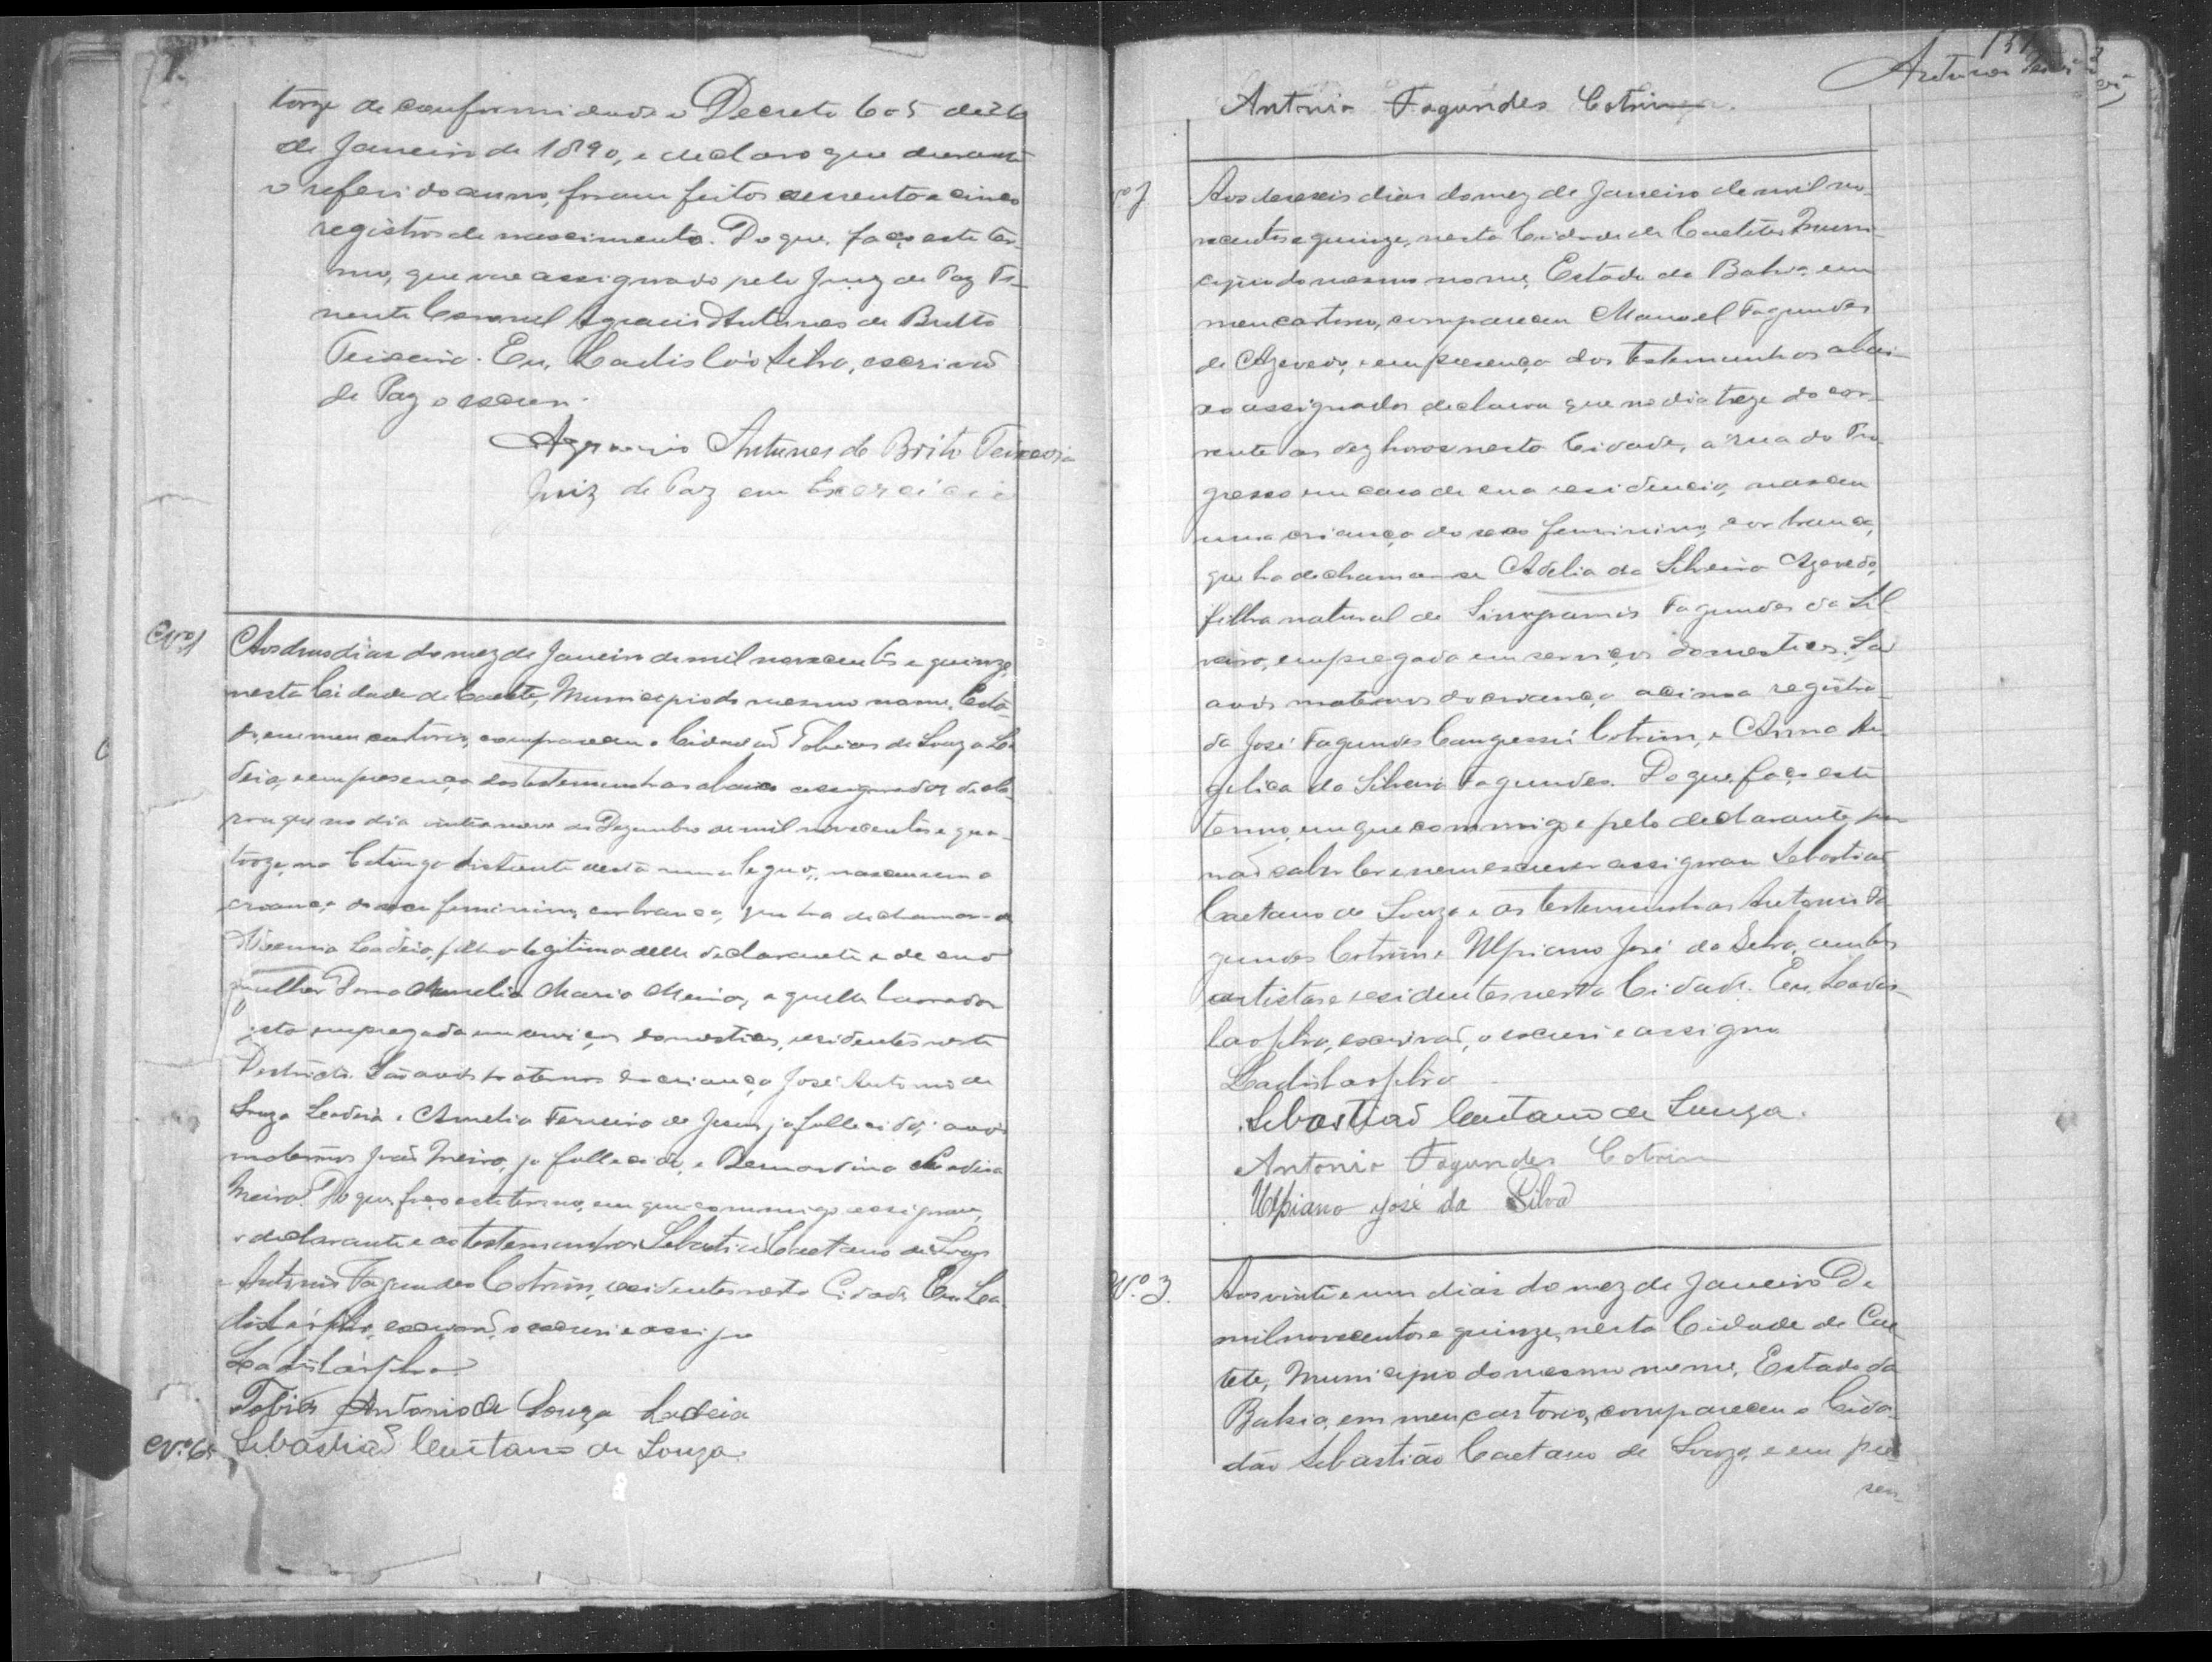 torze de conformidade o Decreto 605 de 26
de Janeiro de 1890, e declaro que durante
o referido anno, foram feitos sessenta e cinco
registros de nascimento. Do que, faço este ter-
mo, que vae assignado pelo Juiz de Paz Te-
nente Coronel Antunes de Britto
Teixeira. Eu, Ladisláo Silva, escrivão
de Paz o escrevi.
Antunes de Brito Teixeira
Juiz de Paz em Exercicio
Nº 1
Aos dous dias do mez de Janeiro de mil novecentos e quinze,
nesta Cidade de Caeteté, Municipio do mesmo nome, Esta-
do, em meu cartorio, compareceu o Cidadão Tobias de Souza La-
deia, e em presença das testemunhas abaixo assignadas, decla-
rou que no dia vinte e nove de Dezembro de mil novecentos e qua-
torze, na Catinga distante desta uma legua, nasceu uma
creança do sexo feminino, cor branca, que ha de chamar-se
Ladeia, filha legitima delle declarante e de sua
mulher Dona Maria Meira, aquelle lavrador
e esta empregada em serviços domesticos, residentes neste
Districto. São avós paternos da criança José Antonio de
Souza Ladeia e Amelia Ferreira de Jesus, já fallecida; avós
maternos João Meira, já fallecido, e Bernardina
Meira. Do que, faço este termo, em que commigo assignam,
o declarante e as testemunhas Sebastião Caetano de Souza
e Antonio Fagundes Cotrim, residentes nesta Cidade. Eu, La-
disláo Silva, escrivão, o escrevi e assigno
Ladisláo Silva
Tobias Antonio de Souza Ladeia
Nº 65 Sebastião Caetano de Souza.
Antonio Fagundes Cotrim.
Aos deseseis dias do mez de Janeiro de mil no-
vecentos e quinze, nesta Cidade de Caeteté, Muni-
cipio do mesmo nome, Estado da Bahia, em
meu cartorio, compareceu Manoel Fagundes
de Azevedo, e em presença das testemunhas abai-
xo assignadas, declarou que no dia treze do cor-
rente as dez horas nesta Cidade, a rua do Pro-
gresso em casa de sua residencia, nasceu
uma criança do sexo feminino, cor branca,
que ha de chamar-se Adelia da Silveira Azevedo,
filha natural de Fagundes da Sil-
veira, empregada em serviços domesticos. São
avós maternos da creança acima registra-
da José Fagundes Cotrim, e Anna An-
gelica da Silveira Fagundes. Do que, faço este
termo, em que commigo e pelo declarante por
não saber ler e nem escrever assignam Sebastião
Caetano de Souza e as testemunhas Antonio Fa-
gundes Cotrim e Ulpiano José da Silva, ambos
artistas e residentes nesta Cidade. Eu, Ladis-
lao Silva, escrivão, o escrevi e assigno
Ladislao Silva
Sebastião Caetano de Souza.
Antonio Fagundes Cotrim
Ulpiano José da Silva
Nº 3.
Aos vinte e um dias do mez de Janeiro de
mil novecentos e quinze, nesta Cidade de Cae-
teté, Municipio do mesmo nome, Estado da
Bahia, em meu cartorio, compareceu o Cida-
dão Sebastião Caetano de Souza, e em pre-
sen-